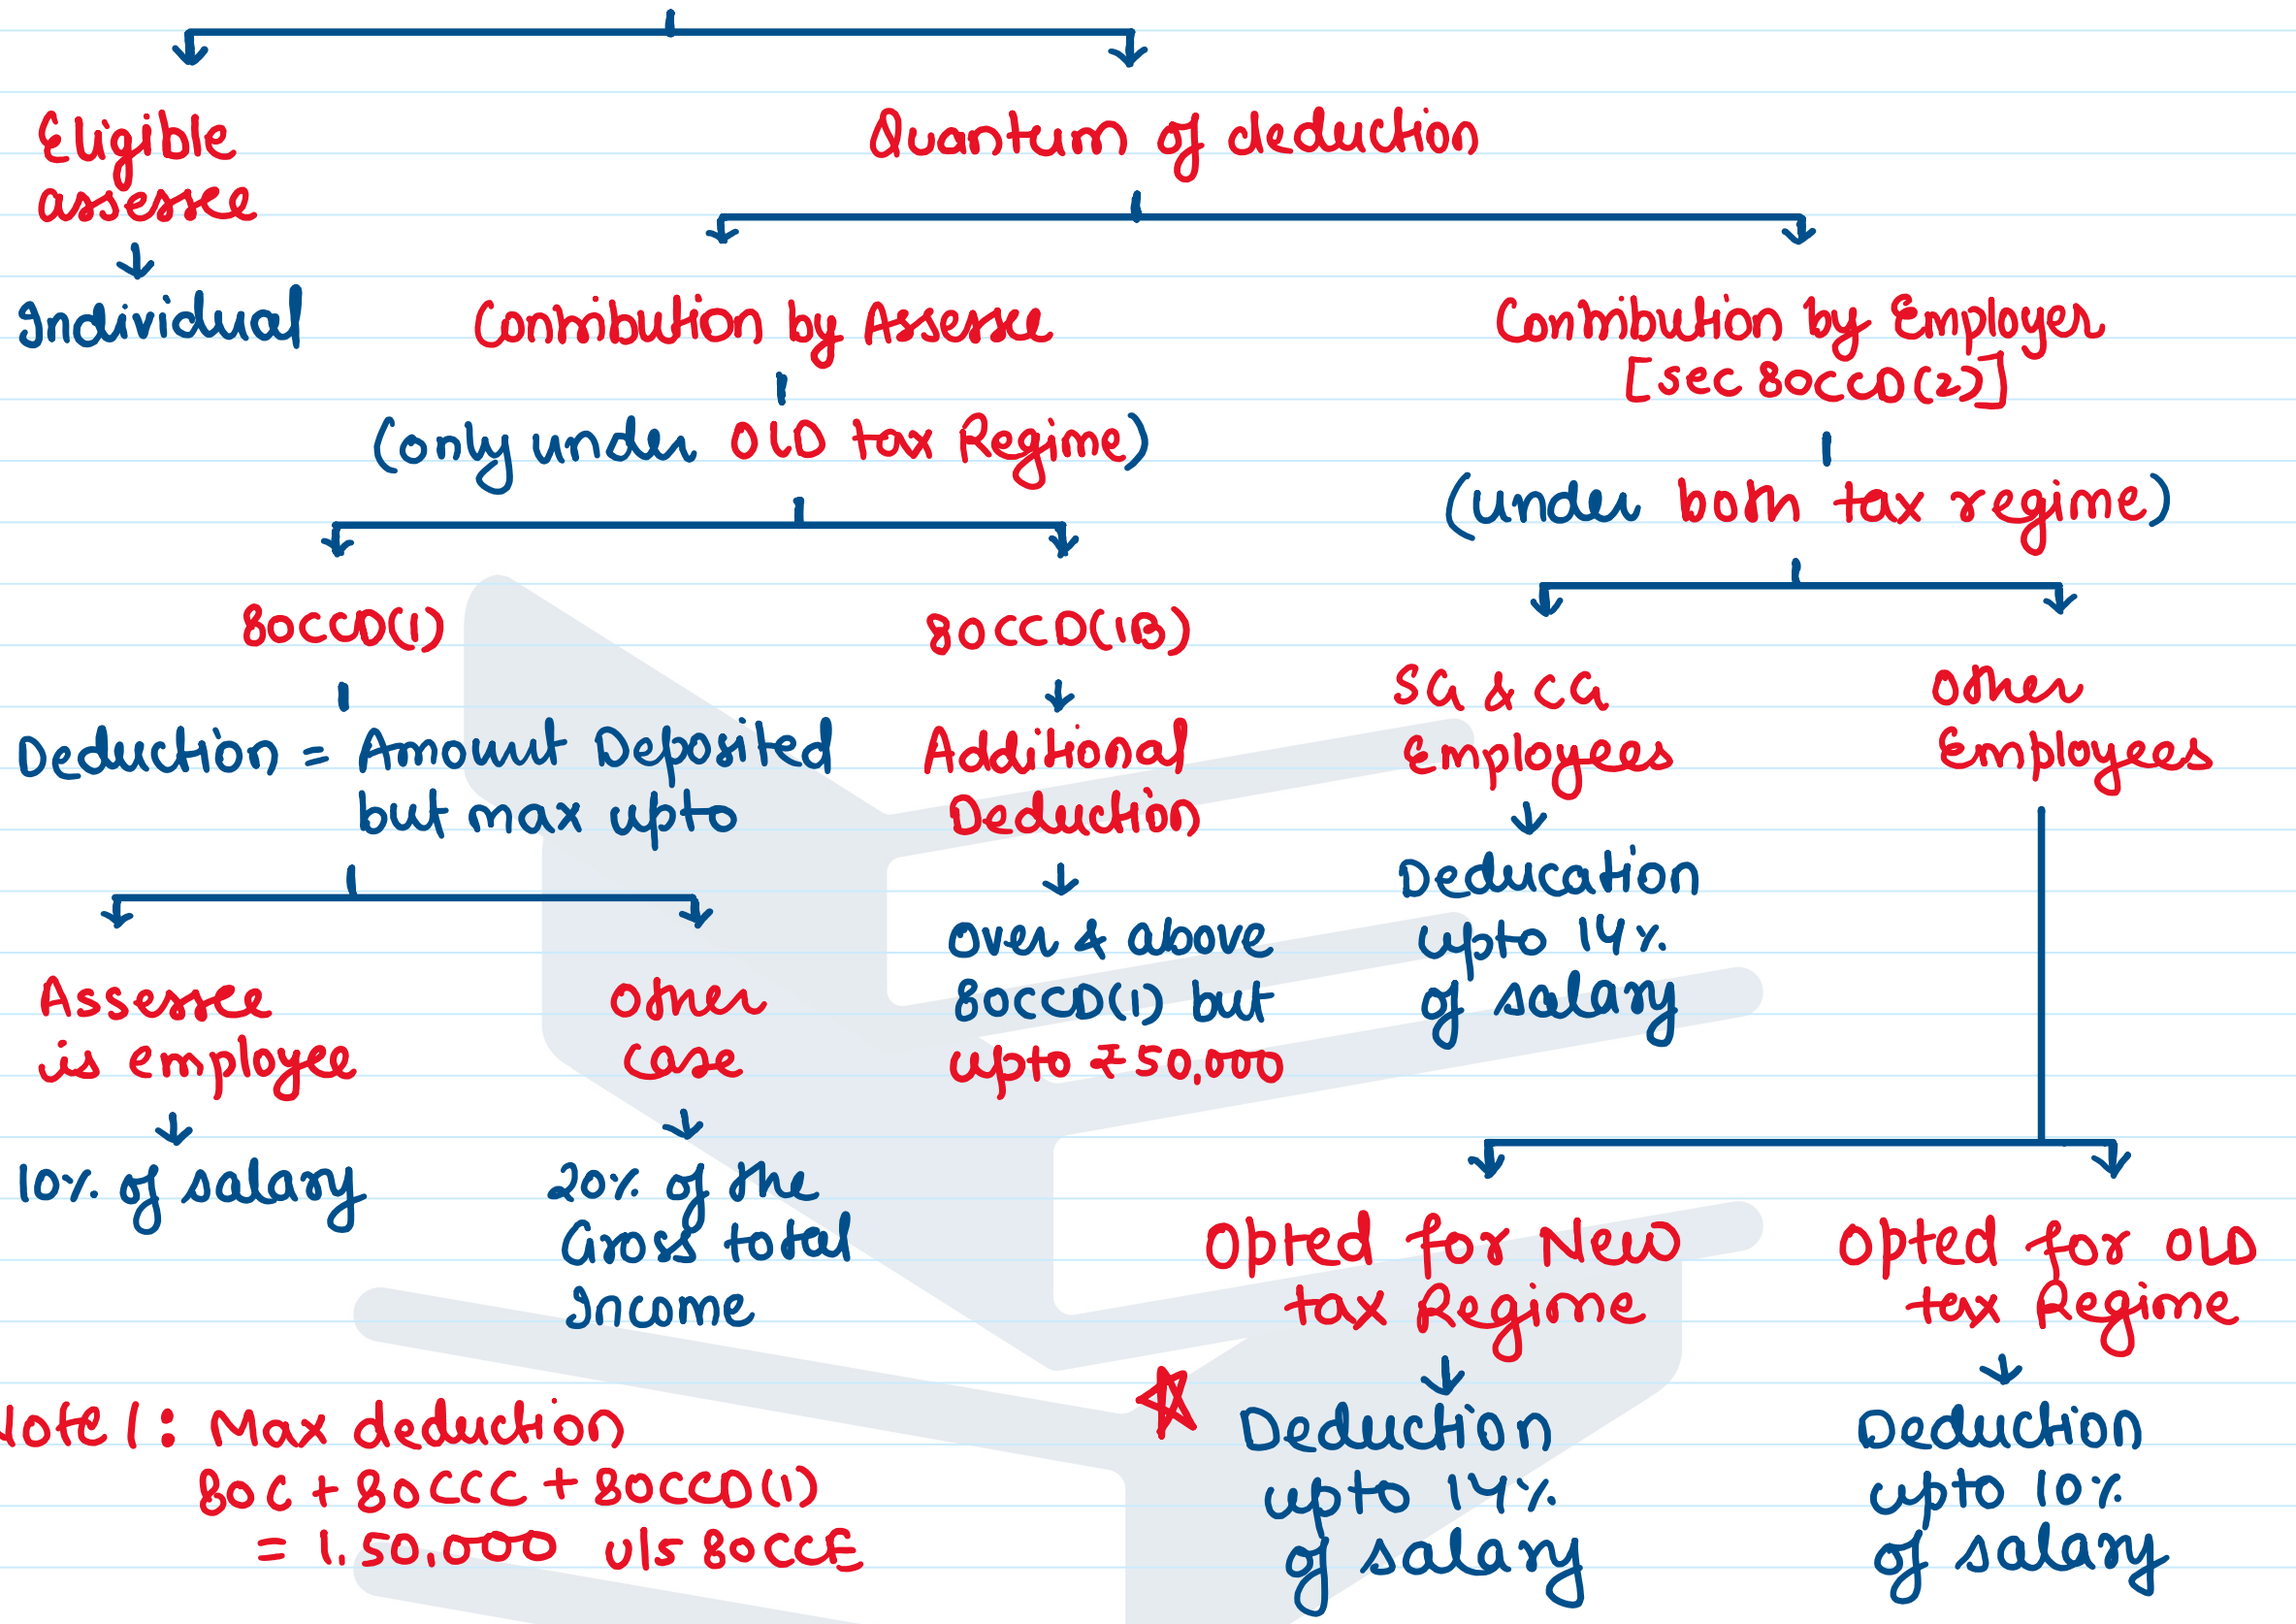 Eligible
assessee
Individual
Quantum of deduction
Contribution by Assessee
(only under OLD tax Regime)
80CCD(1)
Deduction = Amount Deposited
but max upto
Assessee
is employee
10% of salary
Other
case
20% of the
Gross total
Income
80CCD(1B)
Additional
Deduction
Over & above
80CCD(1) but
upto ₹50,000
Contribution by Employer
[sec 80CCD(2)]
(under both tax regime)
SG & CG
Employees
Deducation
upto 14%
of salary
Other
Employees
Opted for New
tax Regime
Deduction
upto 14%
of salary
Opted for OLD
tax Regime
Deduction
upto 10%
of salary
Note 1: Max deduction
80C + 80CCC + 80CCD(1)
= 1,50,000 u/s 80CCE